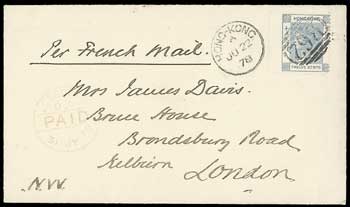 HONG-KONG
A
JU 22
78
HONG KONG
TWELVE CENTS
Per French Mail.
Mrs James Davis.
Bruce House
PAID
Brondsbury Road
Kilburn
London
N.W.